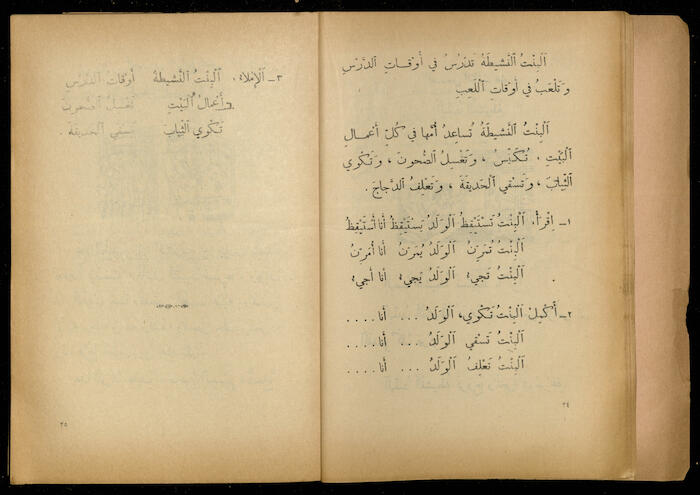 اَلْبِنْتُ النَّشِيطَةُ تَدْرُسُ فِي أَوْقَاتِ الدَّرْسِ
وَتَلْعَبُ فِي أَوْقَاتِ اللَّعِبِ
اَلْبِنْتُ النَّشِيطَةُ تُسَاعِدُ أُمَّهَا فِي كُلِّ أَعْمَالِ
الْبَيْتِ ، تُكَنِّسُ ، وَتَغْسِلُ الصُّحُونَ ، وَتَكْوِي
الثِّيَابَ ، وَتَسْقِي الْحَدِيقَةَ ، وَتَعْلِفُ الدَّجَاجَ .
١ــ اِقْرَأْ، اَلْبِنْتُ تَسْتَيْقِظُ اَلْوَلَدُ يَسْتَيْقِظُ أَنَا أَسْتَيْقِظُ
اَلْبِنْتُ تُمَرِّنُ اَلْوَلَدُ يُمَرِّنُ أَنَا أُمَرِّنُ
اَلْبِنْتُ تَجِيءُ اَلْوَلَدُ يَجِيءُ أَنَا أَجِيءُ
٢ــ أَكْمِلْ اَلْبِنْتُ تَكْوِي، اَلْوَلَدُ ... أَنَا ....
اَلْبِنْتُ تَسْقِي اَلْوَلَدُ ... أَنَا ....
اَلْبِنْتُ تَعْلِفُ اَلْوَلَدُ ... أَنَا ....
٢٤
٣ــ اَلْإِمْلَاءُ، اَلْبِنْتُ النَّشِيطَةُ أَوْقَاتُ الدَّرْسِ
أَعْمَالُ الْبَيْتِ تَغْسِلُ الصُّحُونَ
تَكْوِي الثِّيَابَ تَسْقِي الْحَدِيقَةَ .
٢٥